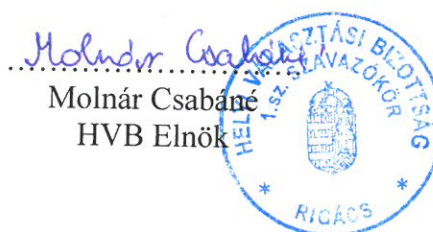 Molnár Csabáné
Molnár Csabáné
HVB Elnök
HELYI VÁLASZTÁSI BIZOTTSÁG
1.sz. SZAVAZÓKÖR
* RIGÁCS *